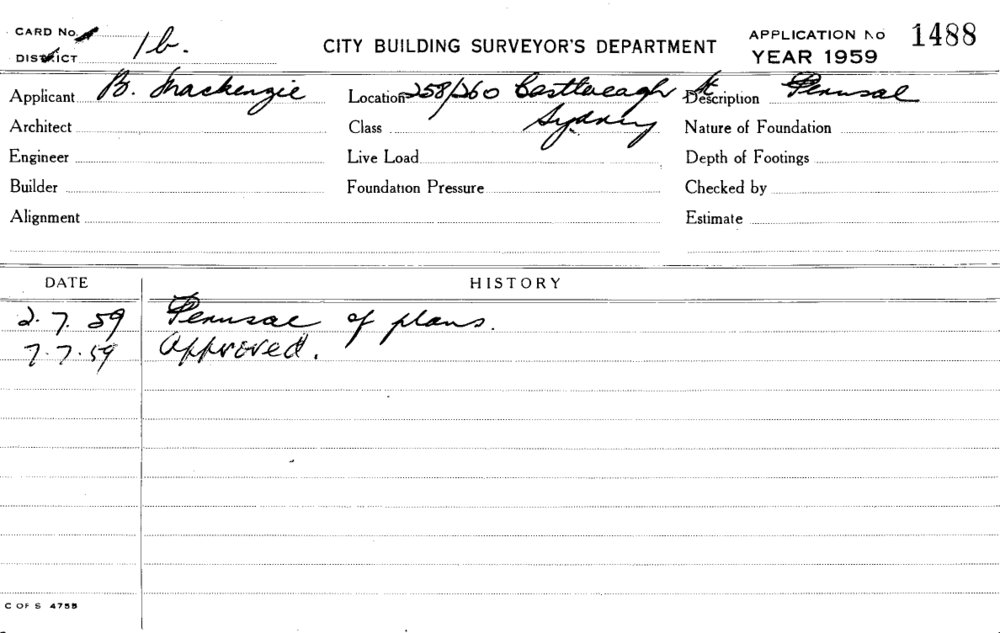 CARD No.
DISTRICT 1b.
CITY BUILDING SURVEYOR'S DEPARTMENT
APPLICATION No 1488
YEAR 1959
Applicant B. Mackenzie Location 258/260 Castlereagh St Description Perusal
Architect Class Sydney Nature of Foundation
Engineer Live Load Depth of Footings
Builder Foundation Pressure Checked by
Alignment Estimate
DATE HISTORY
2.7.59 Perusal of plans.
7.7.59 Approved.
C OF S 475B